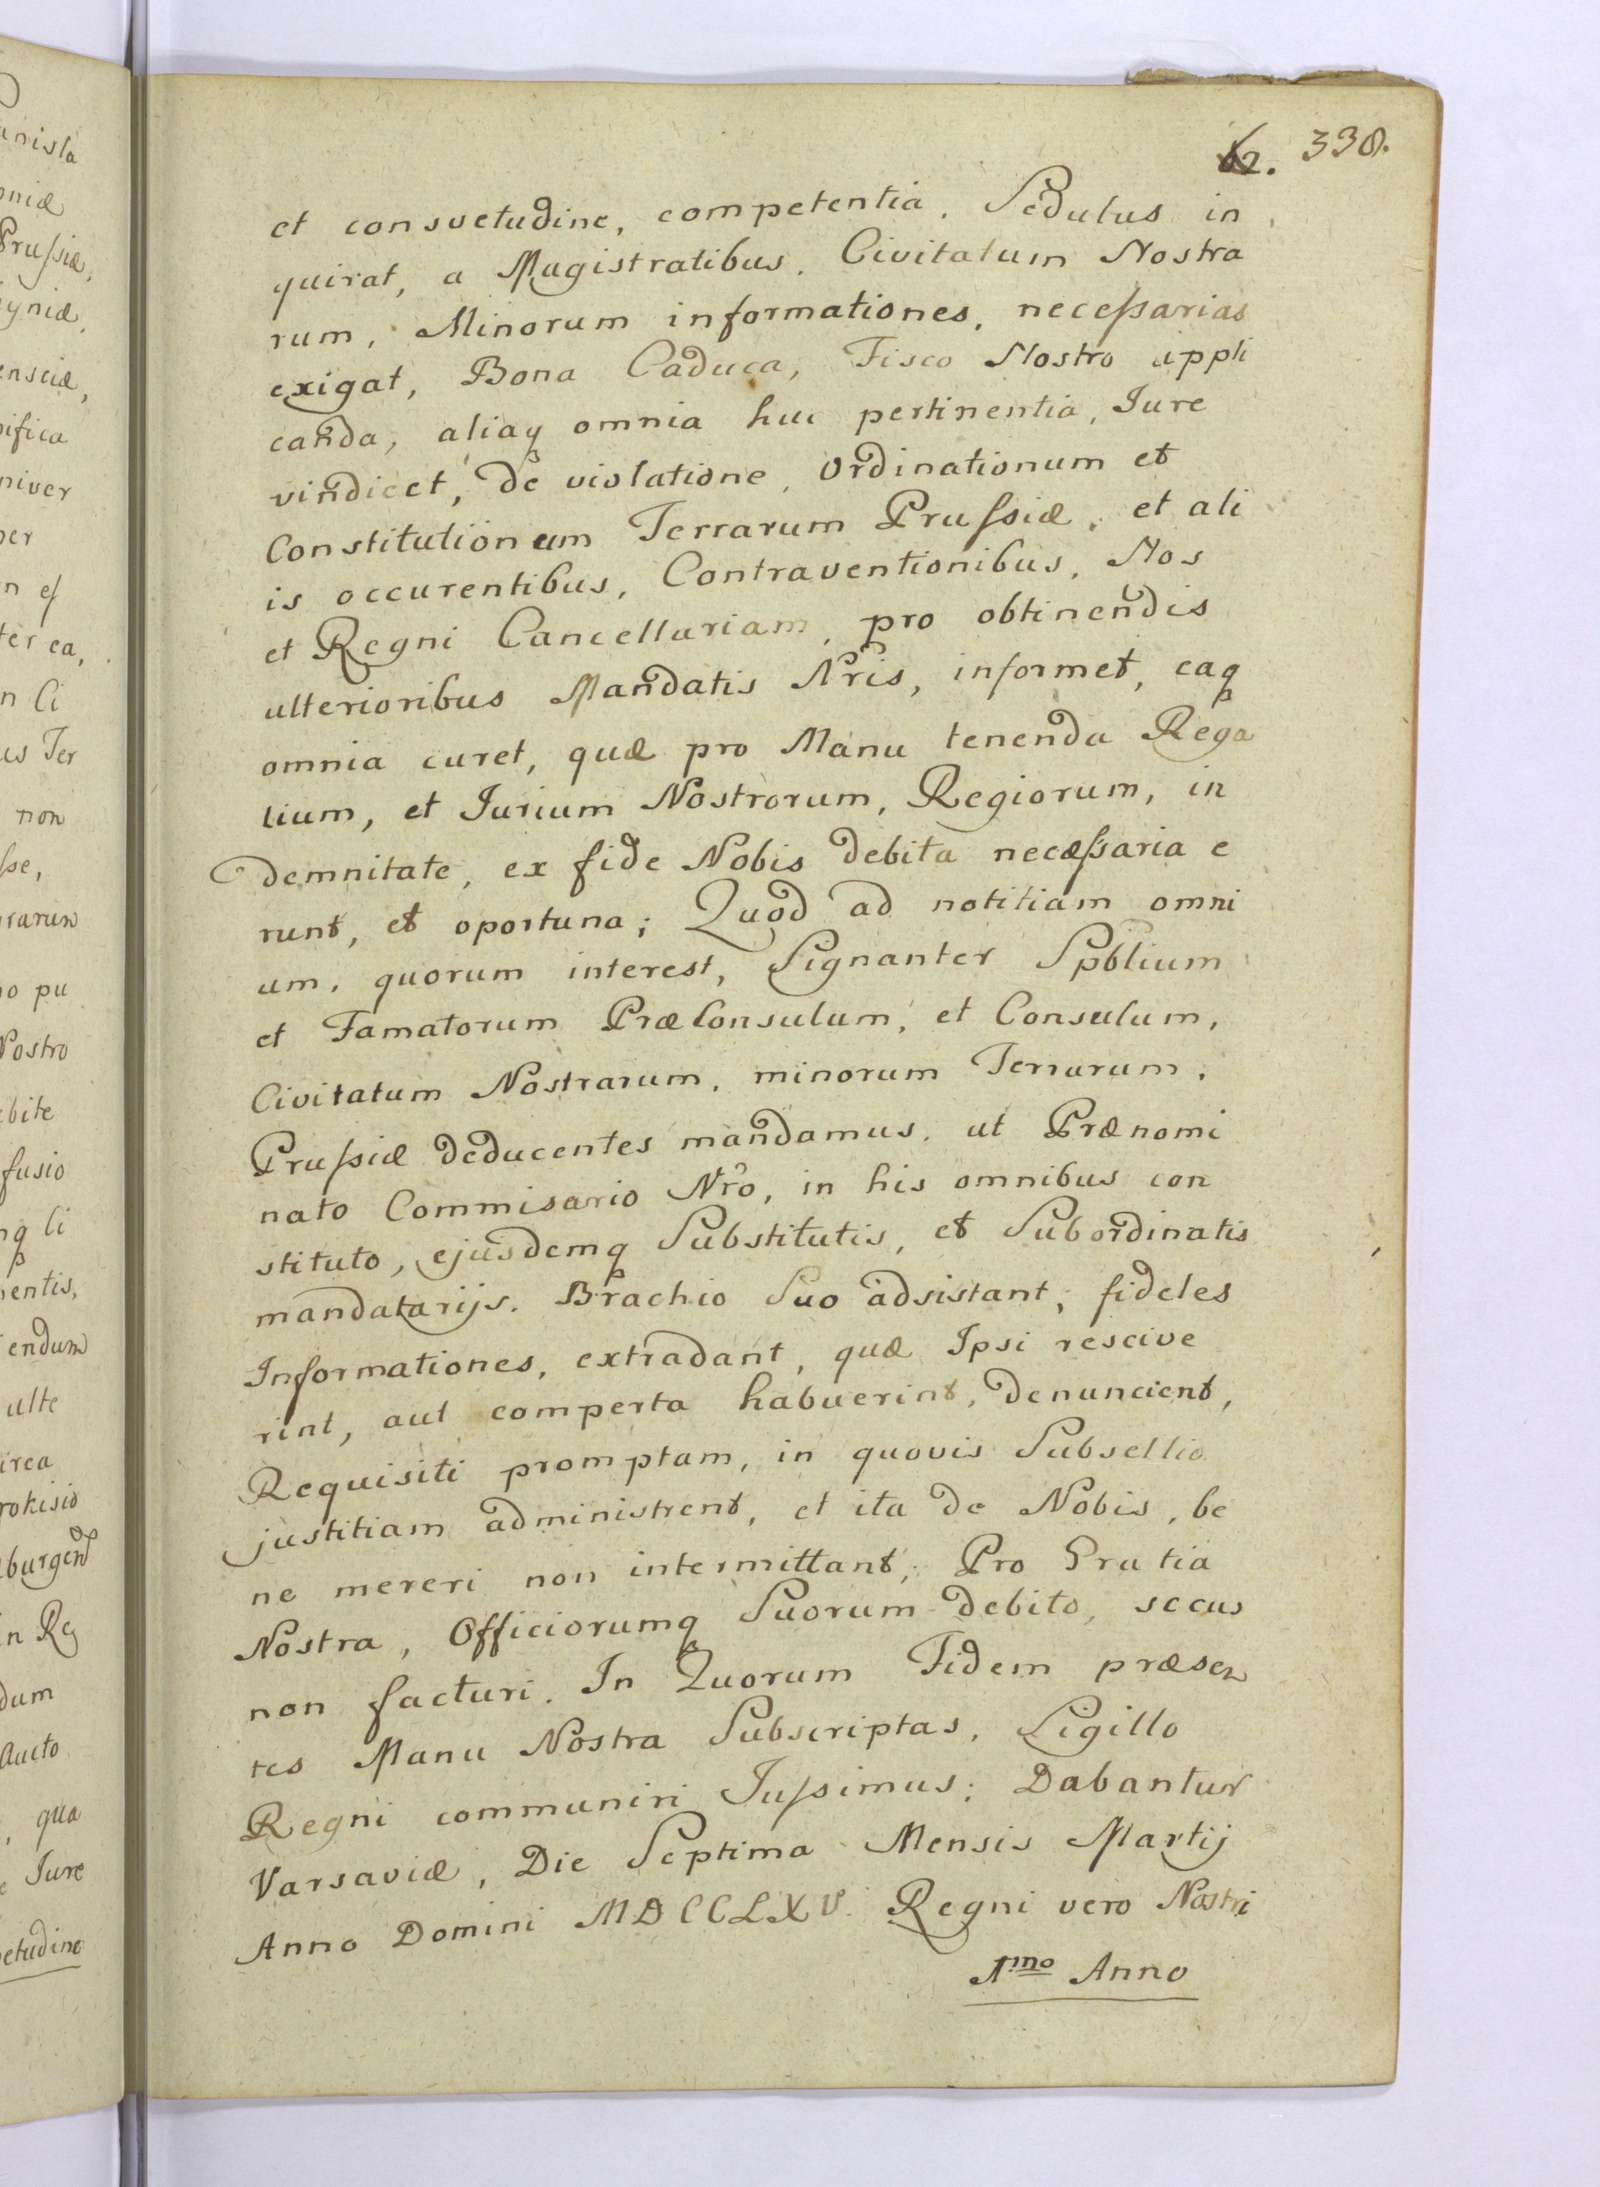 62. 338.
et consvetudine, competentia. Sedulus in
quirat, a Magistratibus. Civitatum Nostra
rum, Minorum informationes, neceſsarias
exigat, Bona Caduca, Fisco Nostro appli
canda, aliaq omnia huc pertinentia, Jure
vindicet, de violatione, Ordinationum et
Constitutionum Terrarum Pruſsiæ, et ali
is occurentibus, Contraventionibus, Nos
et Regni Cancellariam, pro obtinendis
ulterioribus Mandatis Nris, informet, eaq
omnia curet, quæ pro Manu tenenda Rega
lium, et Jurium Nostrorum, Regiorum, in
demnitate, ex fide Nobis debita necæſsaria e
runt, et oportuna; Quod ad notitiam omni
um, quorum interest, Signanter Spblium
et Famatorum PræConsulum, et Consulum,
Civitatum Nostrarum, minorum Terrarum,
Pruſsiæ deducentes mandamus, ut Prænomi
nato Commisario Nro, in his omnibus con
stituto, ejusdemq Substitutis, et Subordinatis
mandatarijs. Brachio Suo adsistant, fideles
Informationes, extradant, quæ Ipsi rescive
rint, aut comperta habuerint, denuncient,
Requisiti promptam, in quovis Subsellio
justitiam administrent, et ita de Nobis, be
ne mereri non intermittant; Pro Gratia
Nostra, Officiorumq Suorum debito, secus
non facturi. In Quorum Fidem præsen
tes Manu Nostra Subscriptas, Sigillo
Regni communiri Juſsimus; Dabantur
Varsaviæ, Die Septima Mensis Martij
Anno Domini MDCCLXV. Regni vero Nostri
1mo Anno